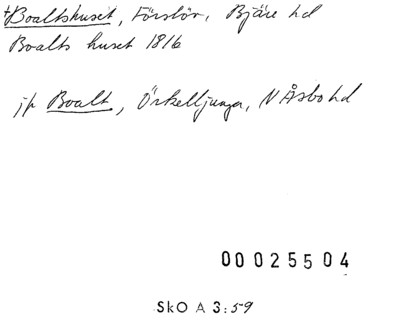 †Boaltshuset, Förslöv, Bjäre hd
Boalts huset 1816
jfr Boalt, Örkelljunga, N Åsbo hd
00025504
SkO A 3:59